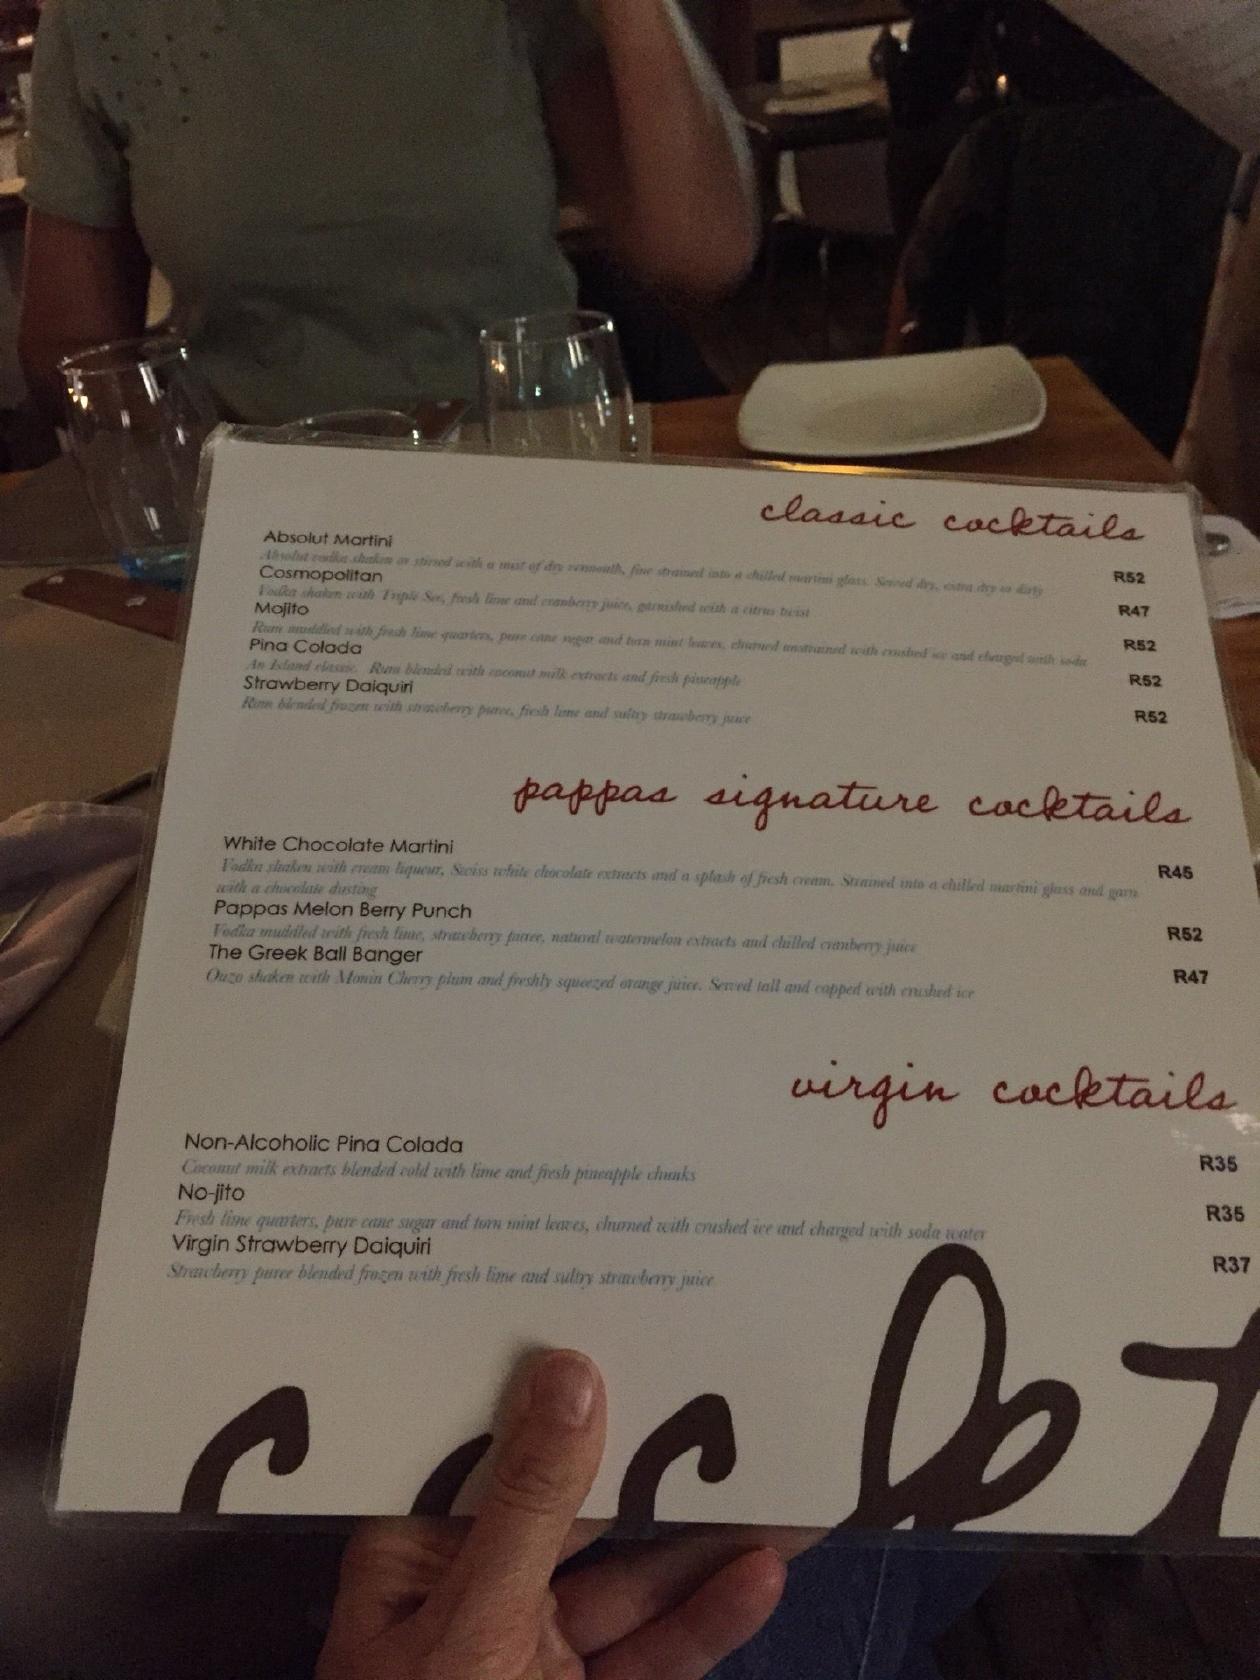 classic cocktails
Absolut Martini
Absolut vodka shaken or stirred with a mist of dry vermouth, fine strained into a chilled martini glass. Served dry, extra dry or dirty
R52
Cosmopolitan
Vodka shaken with Triple Sec, fresh lime and cranberry juice, garnished with a citrus twist
R47
Mojito
Rum muddled with fresh lime quarters, pure cane sugar and torn mint leaves, churned unstrained with crushed ice and charged with soda
R52
Pina Colada
An Island classic. Rum blended with coconut milk extracts and fresh pineapple
R52
Strawberry Daiquiri
Rum blended frozen with strawberry puree, fresh lime and sultry strawberry juice
R52
pappas signature cocktails
White Chocolate Martini
Vodka shaken with cream liqueur, Swiss white chocolate extracts and a splash of fresh cream. Strained into a chilled martini glass and garn
with a chocolate dusting
R45
Pappas Melon Berry Punch
Vodka muddled with fresh lime, strawberry puree, natural watermelon extracts and chilled cranberry juice
R52
The Greek Ball Banger
Ouzo shaken with Monin Cherry plum and freshly squeezed orange juice. Served tall and capped with crushed ice
R47
virgin cocktails
Non-Alcoholic Pina Colada
Coconut milk extracts blended cold with lime and fresh pineapple chunks
R35
No-jito
Fresh lime quarters, pure cane sugar and torn mint leaves, churned with crushed ice and charged with soda water
R35
Virgin Strawberry Daiquiri
Strawberry puree blended frozen with fresh lime and sultry strawberry juice
R37
cockt